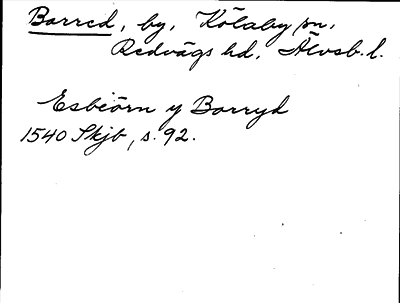 Borred, by, Kölaby sn.
Redvägs hd, Älvsb. l.
Esbiörn y Borryd
1540 Skjb, s. 92.